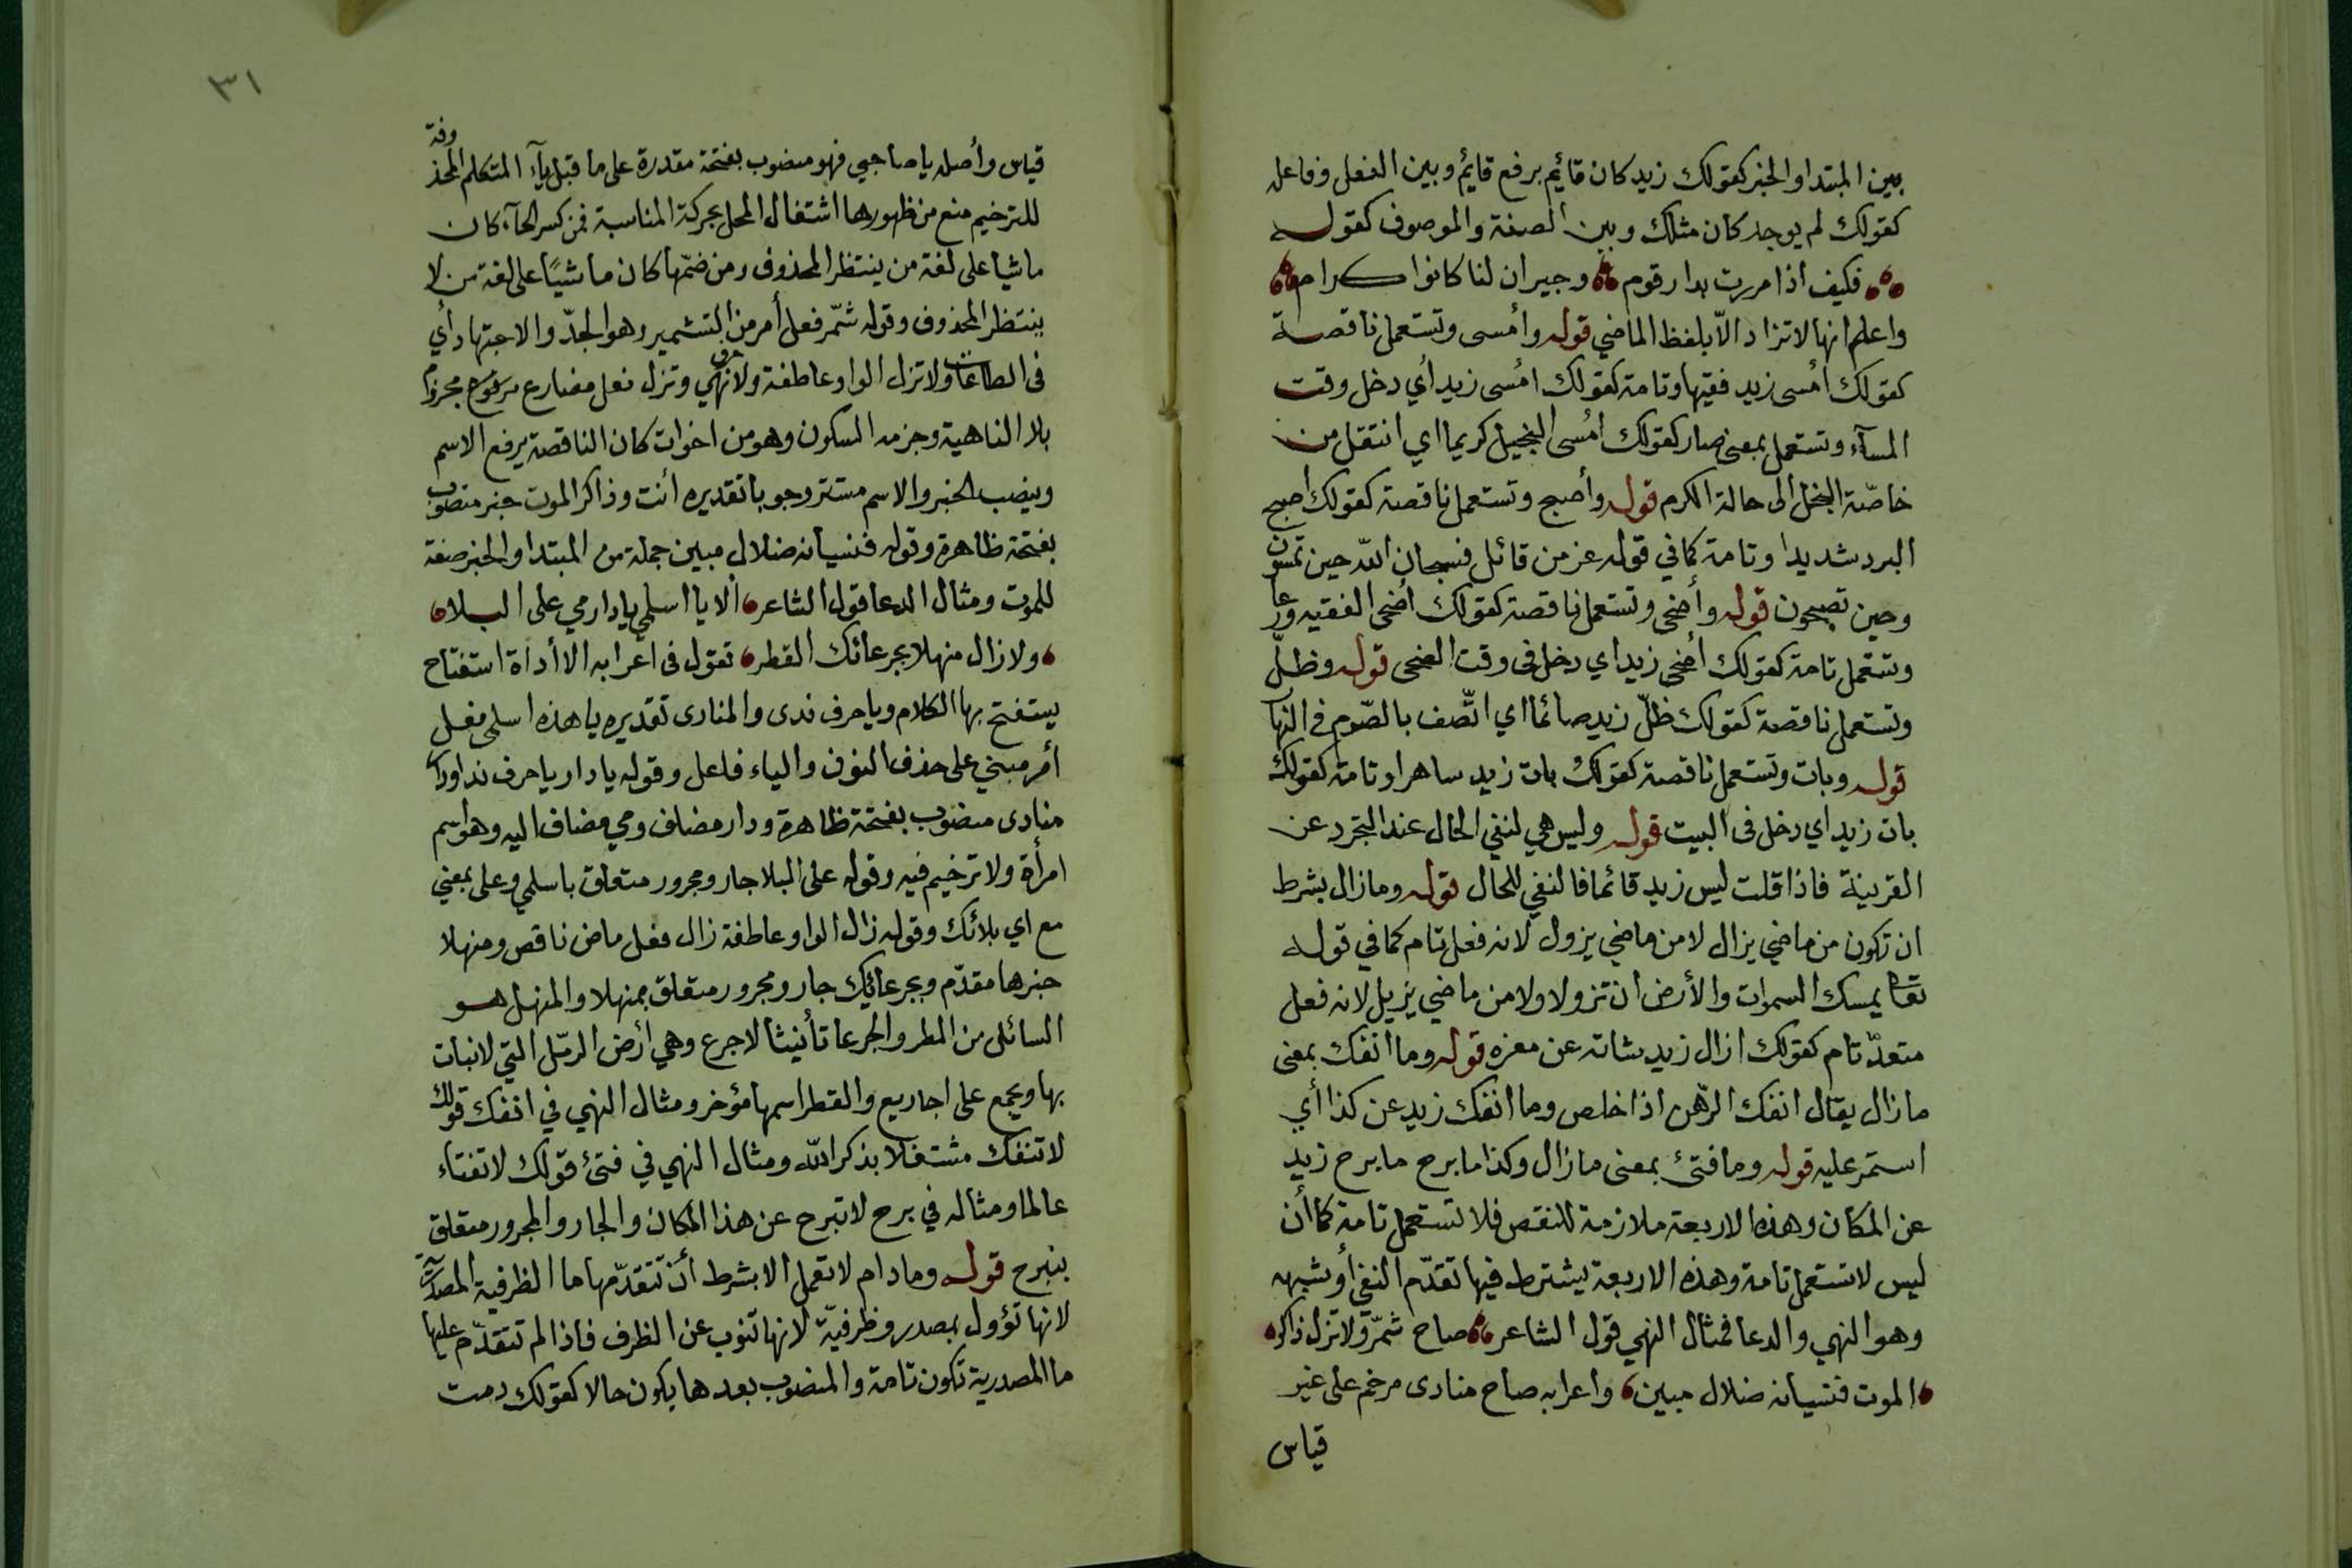 بين المبتدا والخبر كقولك زيد كان قائم برفع قائم وبين الفعل وفاعله
كقولك لم يوجد كان مثلك وبين الصفة والموصوف كقوله
فكيف اذا مررت بدار قوم وجيران لنا كانوا كرام
واعلم انها لا تزاد الّا بلفظ الماضي قوله وأمسى وتستعمل ناقصة
كقولك أمسى زيد فقيها وتامة كقولك امٔسى زيد أي دخل وقت
المسآء وتستعمل بمعنى صار كقولك امٔسى البخيل كريما اي انتقل من
خاصّة البخل الى حالة الكرم قوله وأصبح وتستعمل ناقصة كقولك اصبح
البرد شديدا وتامة كما في قوله عز من قائل فسبحان الله حين تمسون
وحين تصبحون قوله وأضحى وتستعمل ناقصة كقولك أضحى الفقيه ورعا
وتستعمل تامة كقولك أضحى زيد اي دخل في وقت الضحى قوله وظلّ
وتستعمل ناقصة كقولك ظلّ زيد صائما اي اتّصف بالصّوم في النها
قوله وبات وتستعمل ناقصة كقولك بات زيد ساهرا وتامة كقولك
بات زيد اي دخل فى البيت قوله وليس هي لنفي الحال عند التجرد عن
القرينة فاذا قلت ليس زيد قائما فالنفي للحال قوله وما زال بشرط
ان تكون من ماضي يزال لا من ماضي يزول لانه فعل تام كما في قوله
تعا يمسك السموات والأرض ان تزولا ولا من ماضي يزيل لانه فعل
متعدّ تام كقولك ازال زيد شاته عن معزه قوله وما انفك بمعنى
ما زال يقال انفك الرّهن اذا خلص وما انفك زيد عن كذا أي
استمر عليه قوله وما فتئ بمعنى ما زال وكذا ما برح ما برح زيد
عن المكان وهذه الاربعة ملازمة للنقص فلا تستعمل تامة كما أن
ليس لا تستعمل تامة وهذه الاربعة يشترط فيها تقدّم النفي أو شبهه
وهو النهي والدعا فمثال النهي قول الشاعر صاح شمّر ولا تزل ذاكر
الموت فنسيانه ضلال مبين واعرابه صاح منادى مرخم على غير
قياس
٣١
قياس وأصله يا صاحبي فهو منصوب بفتحة مقدرة على ما قبل يآء المتكلم المحذوفة
للترخيم منع من ظهورها اشتغال المحل بحركة المناسبة فمن كسر الحآء كان
ماشيا على لغة من ينتظر المحذوف ومن ضمّها كان ماشيًا على لغة من لا
ينتظر المحذوف وقوله شمّر فعل أمر من التشمير وهو الجدّ والاجتهاد أي
فى الطاعات ولا تزل الواو عاطفة ولا نهي وتزل فعل مضارع مجزوم
بلا الناهية وجزمه السكون وهو من اخوات كان الناقصة يرفع الاسم
وينصب الخبر والاسم مستتر وجوبا تقديره أنت وذاكر الموت خبر منصوب
بفتحة ظاهرة وقوله فنسيانه ضلال مبين جملة من المبتدا والخبر صفة
للموت ومثال الدعا قول الشاعر ألا يا اسلمي يا دارمي على البلا
ولا زال منهلا بجرعائك القطر تقول فى اعرابه الا أداة استفتاح
يستفتح بها الكلام ويا حرف ندى والمنادى تقديره يا هذه اسلمى فعل
أمر مبني على حذف النون والياء فاعل وقوله يا دار يا حرف ندا ودار
منادى منصوب بفتحة ظاهرة ودار مضاف ومي مضاف اليه وهو اسم
امرأة ولا ترخيم فيه وقوله على البلا جار ومجرور متعلق باسلمي وعلى بمعني
مع اي بلائك وقوله زال الواو عاطفة زال فعل ماض ناقص ومنهلا
خبرها مقدّم وبجرعائك جار ومجرور متعلق بمنهلا والمنهل هو
السائل من المطر والجرعا تأنيث الاجرع وهي أرض الرمّل التي لا نبات
بها ويجمع على اجاريع والقطر اسمها مؤخر ومثال النهي في انفك قولك
لا تنفك مشتغلا بذكر الله ومثال النهي في فتئ قولك لا تفتاء
عالما ومثاله في برح لا تبرح عن هذا المكان والجار والمجرور متعلق
بتبرح قوله وما دام لا تعمل الا بشرط أن تتقدّمها ما الظرفية المصدرية
لانها تؤول بمصدر وظرفيّة لانها تنوب عن الظرف فاذا لم تتقدّم عليها
ما المصدرية تكون تامة والمنصوب بعدها يكون حالا كقولك دمت